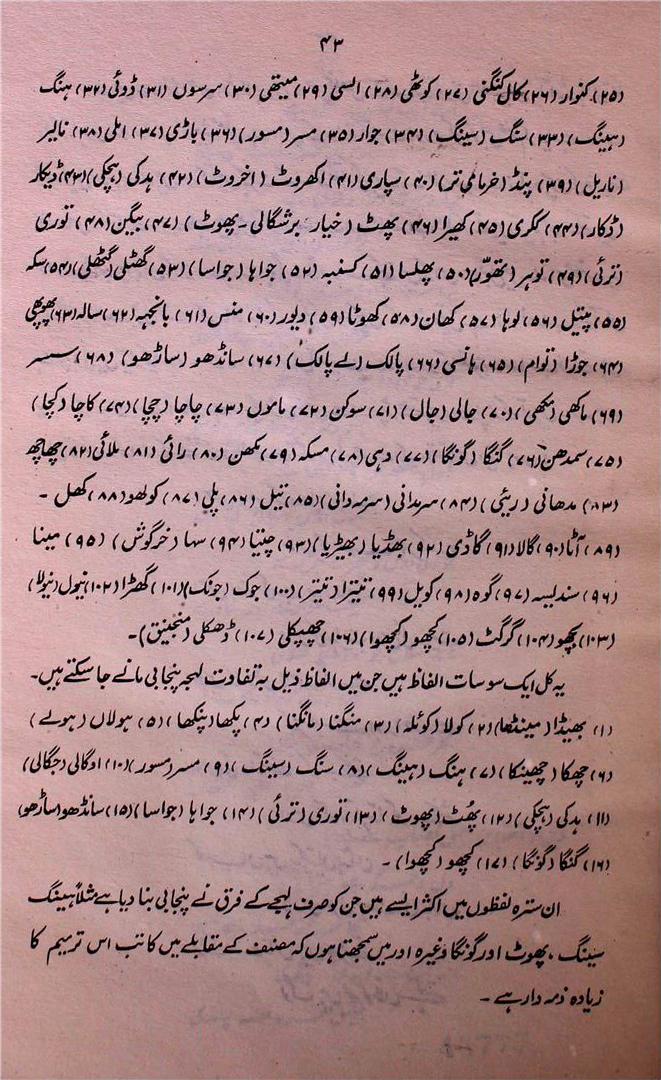 ۴۳
(۲۵) کنوار (۲۶) کال کنگنی (۲۷) کوٹھی (۲۸) السی (۲۹) میتھی (۳۰) سرسوں (۳۱) ڈوئی (۳۲) ہنگ
(ہینگ) (۳۳) سنگ (سینگ) (۳۴) جوار (۳۵) مسر (مسور) (۳۶) باڑی (۳۷) املی (۳۸) نالیر
(ناریل) (۳۹) پنڈ (خرمای تر) (۴۰) سپاری (۴۱) اکھروٹ (اخروٹ) (۴۲) ہدکی (ہچکی) (۴۳) ڈیکار
(ڈکار) (۴۴) ککری (۴۵) کھیرا (۴۶) پھٹ (خیار برشگالی ۔ پھوٹ) (۴۷) بیگن (۴۸) توری
(ترئی) (۴۹) توہر (تھوّر) (۵۰) پھلسا (۵۱) کسنبہ (۵۲) جواہا (جواسا) (۵۳) گھٹلی (گٹھلی) (۵۴) سکہ
(۵۵) پیتل (۵۶) لوہا (۵۷) کھان (۵۸) کھوٹا (۵۹) دیور (۶۰) منس (۶۱) بانجہہ (۶۲) سالہ (۶۳) پھوپھی
(۶۴) جوڑا (توام) (۶۵) ہانسی (۶۶) پالک (لے پالک) (۶۷) سانڈھو (ساڑھو) (۶۸) سسر
(۶۹) ماکھی (مکھی) (۷۰) جالی (جال) (۷۱) سوکن (۷۲) ماموں (۷۳) چاچا (چچا) (۷۴) کاچا (کچا)
(۷۵) سمدھن (۷۶) گنگا (گونگا) (۷۷) دہی (۷۸) مسکہ (۷۹) مکھن (۸۰) رائی (۸۱) ملائی (۸۲) چھاچھ
(۸۳) مدھانی (رئی) (۸۴) سرمدانی (سرمہ دانی) (۸۵) تیل (۸۶) پلی (۸۷) کولھو (۸۸) کھل ۔
(۸۹) آٹا (۹۰) گالا (۹۱) گاڈی (۹۲) بھڈیا (بھیڑیا) (۹۳) چنتیا (۹۴) سہا (خرگوش) (۹۵) مینا
(۹۶) سندلیسہ (۹۷) گوہ (۹۸) کویل (۹۹) تیترا (تیتر) (۱۰۰) جوک (جونک) (۱۰۱) گھڑا (۱۰۲) نیول (نیولا)
(۱۰۳) بچھو (۱۰۴) گرگٹ (۱۰۵) کچھو (کچھوا) (۱۰۶) چھپکلی (۱۰۷) ڈھکلی (منجنیق) ۔
یہ کل ایک سو سات الفاظ ہیں جن میں الفاظ ذیل بہ تفاوت لہجہ پنجابی مانے جا سکتے ہیں۔
(۱) بھیڈا (مینڈھا) (۲) کولا (کوئلہ) (۳) منگنا (مانگنا) (۴) پکھا (پنکھا) (۵) ہولاں (ہولے)
(۶) چھکا (چھینکا) (۷) ہنگ (ہینگ) (۸) سنگ (سینگ) (۹) مسر (مسور) (۱۰) اوگالی (جگالی)
(۱۱) ہدکی (ہچکی) (۱۲) پھُٹ (پھوٹ) (۱۳) توری (ترئی) (۱۴) جواہا (جواسا) (۱۵) سانڈھو (ساڑھو)
(۱۶) گنگا (گونگا) (۱۷) کچھو (کچھوا) ۔
ان سترہ لفظوں میں اکثر ایسے ہیں جن کو صرف لہجے کے فرق نے پنجابی بنا دیا ہے مثلاً ہینگ
سینگ ، پھوٹ اور گونگا وغیرہ اور میں سمجھتا ہوں کہ مصنف کے مقابلے میں کاتب اس ترمیم کا
زیادہ ذمہ دار ہے ۔